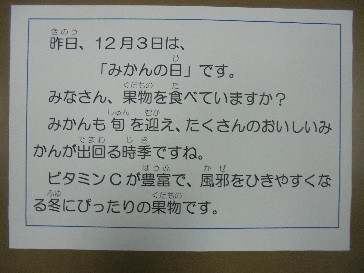 昨日、12月3日は、
「みかんの日」です。
みなさん、果物を食べていますか？
みかんも旬を迎え、たくさんのおいしいみ
かんが出回る時季ですね。
ビタミンCが豊富で、風邪をひきやすくな
る冬にぴったりの果物です。